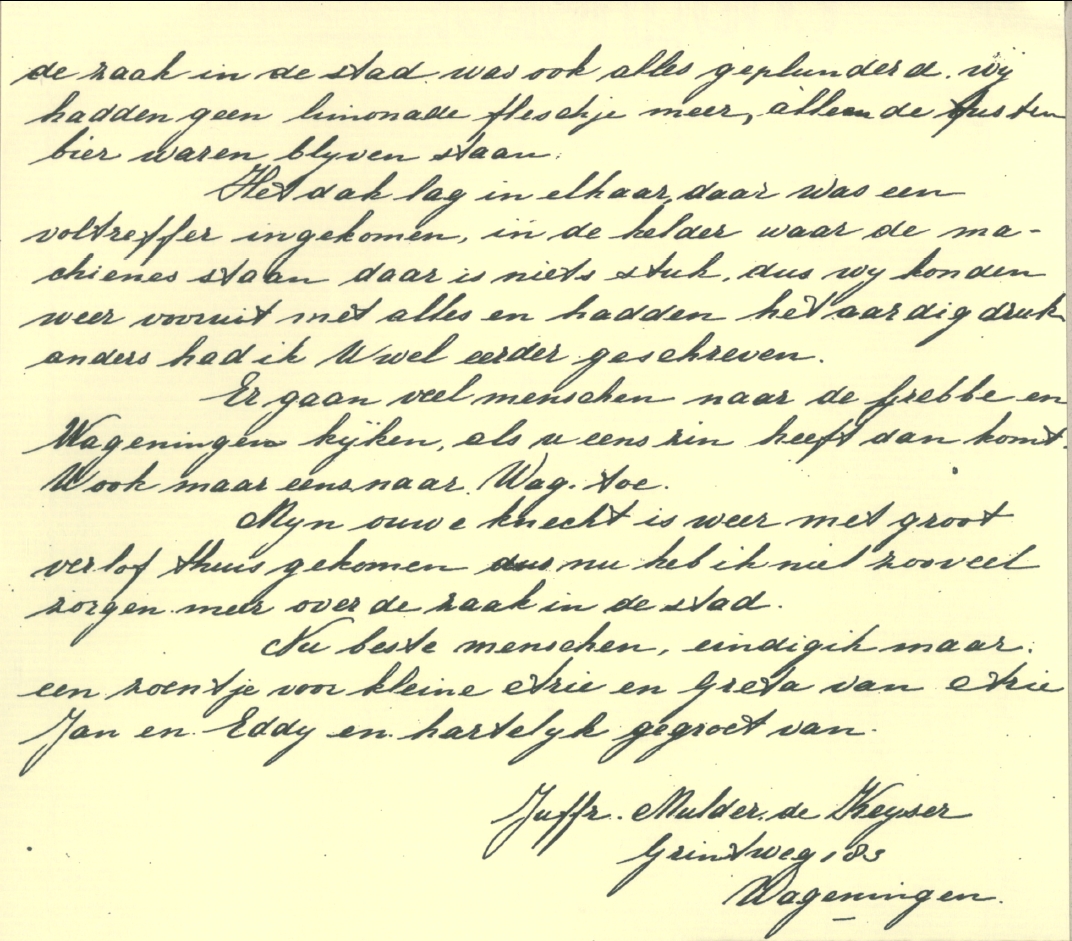 de zaak in de stad was ook alles geplunderd. wy
hadden geen limonade fleschje meer, alleen de fusten
bier waren blyven staan.
Het dak lag in elkaar, daar was een
voltreffer ingekomen, in de kelder waar de ma-
chienes staan daar is niets stuk, dus wy konden
weer vooruit met alles en hadden het aardig druk
anders had ik U wel eerder geschreven.
Er gaan veel menschen naar de Grebbe en
Wageningen kyken, als u eens zin heeft dan komt.
U ook maar eens naar Wag. toe.
Myn ouwe knecht is weer met groot
verlof thuis gekomen dus nu heb ik niet zooveel
zorgen meer over de zaak in de stad.
Nu beste menschen, eindig ik maar.
een zoentje voor kleine en Greta van
Jan en Eddy en hartelyk gegroet van.
Juffr. Mulder. de Keyser
Grintweg 183
Wageningen.